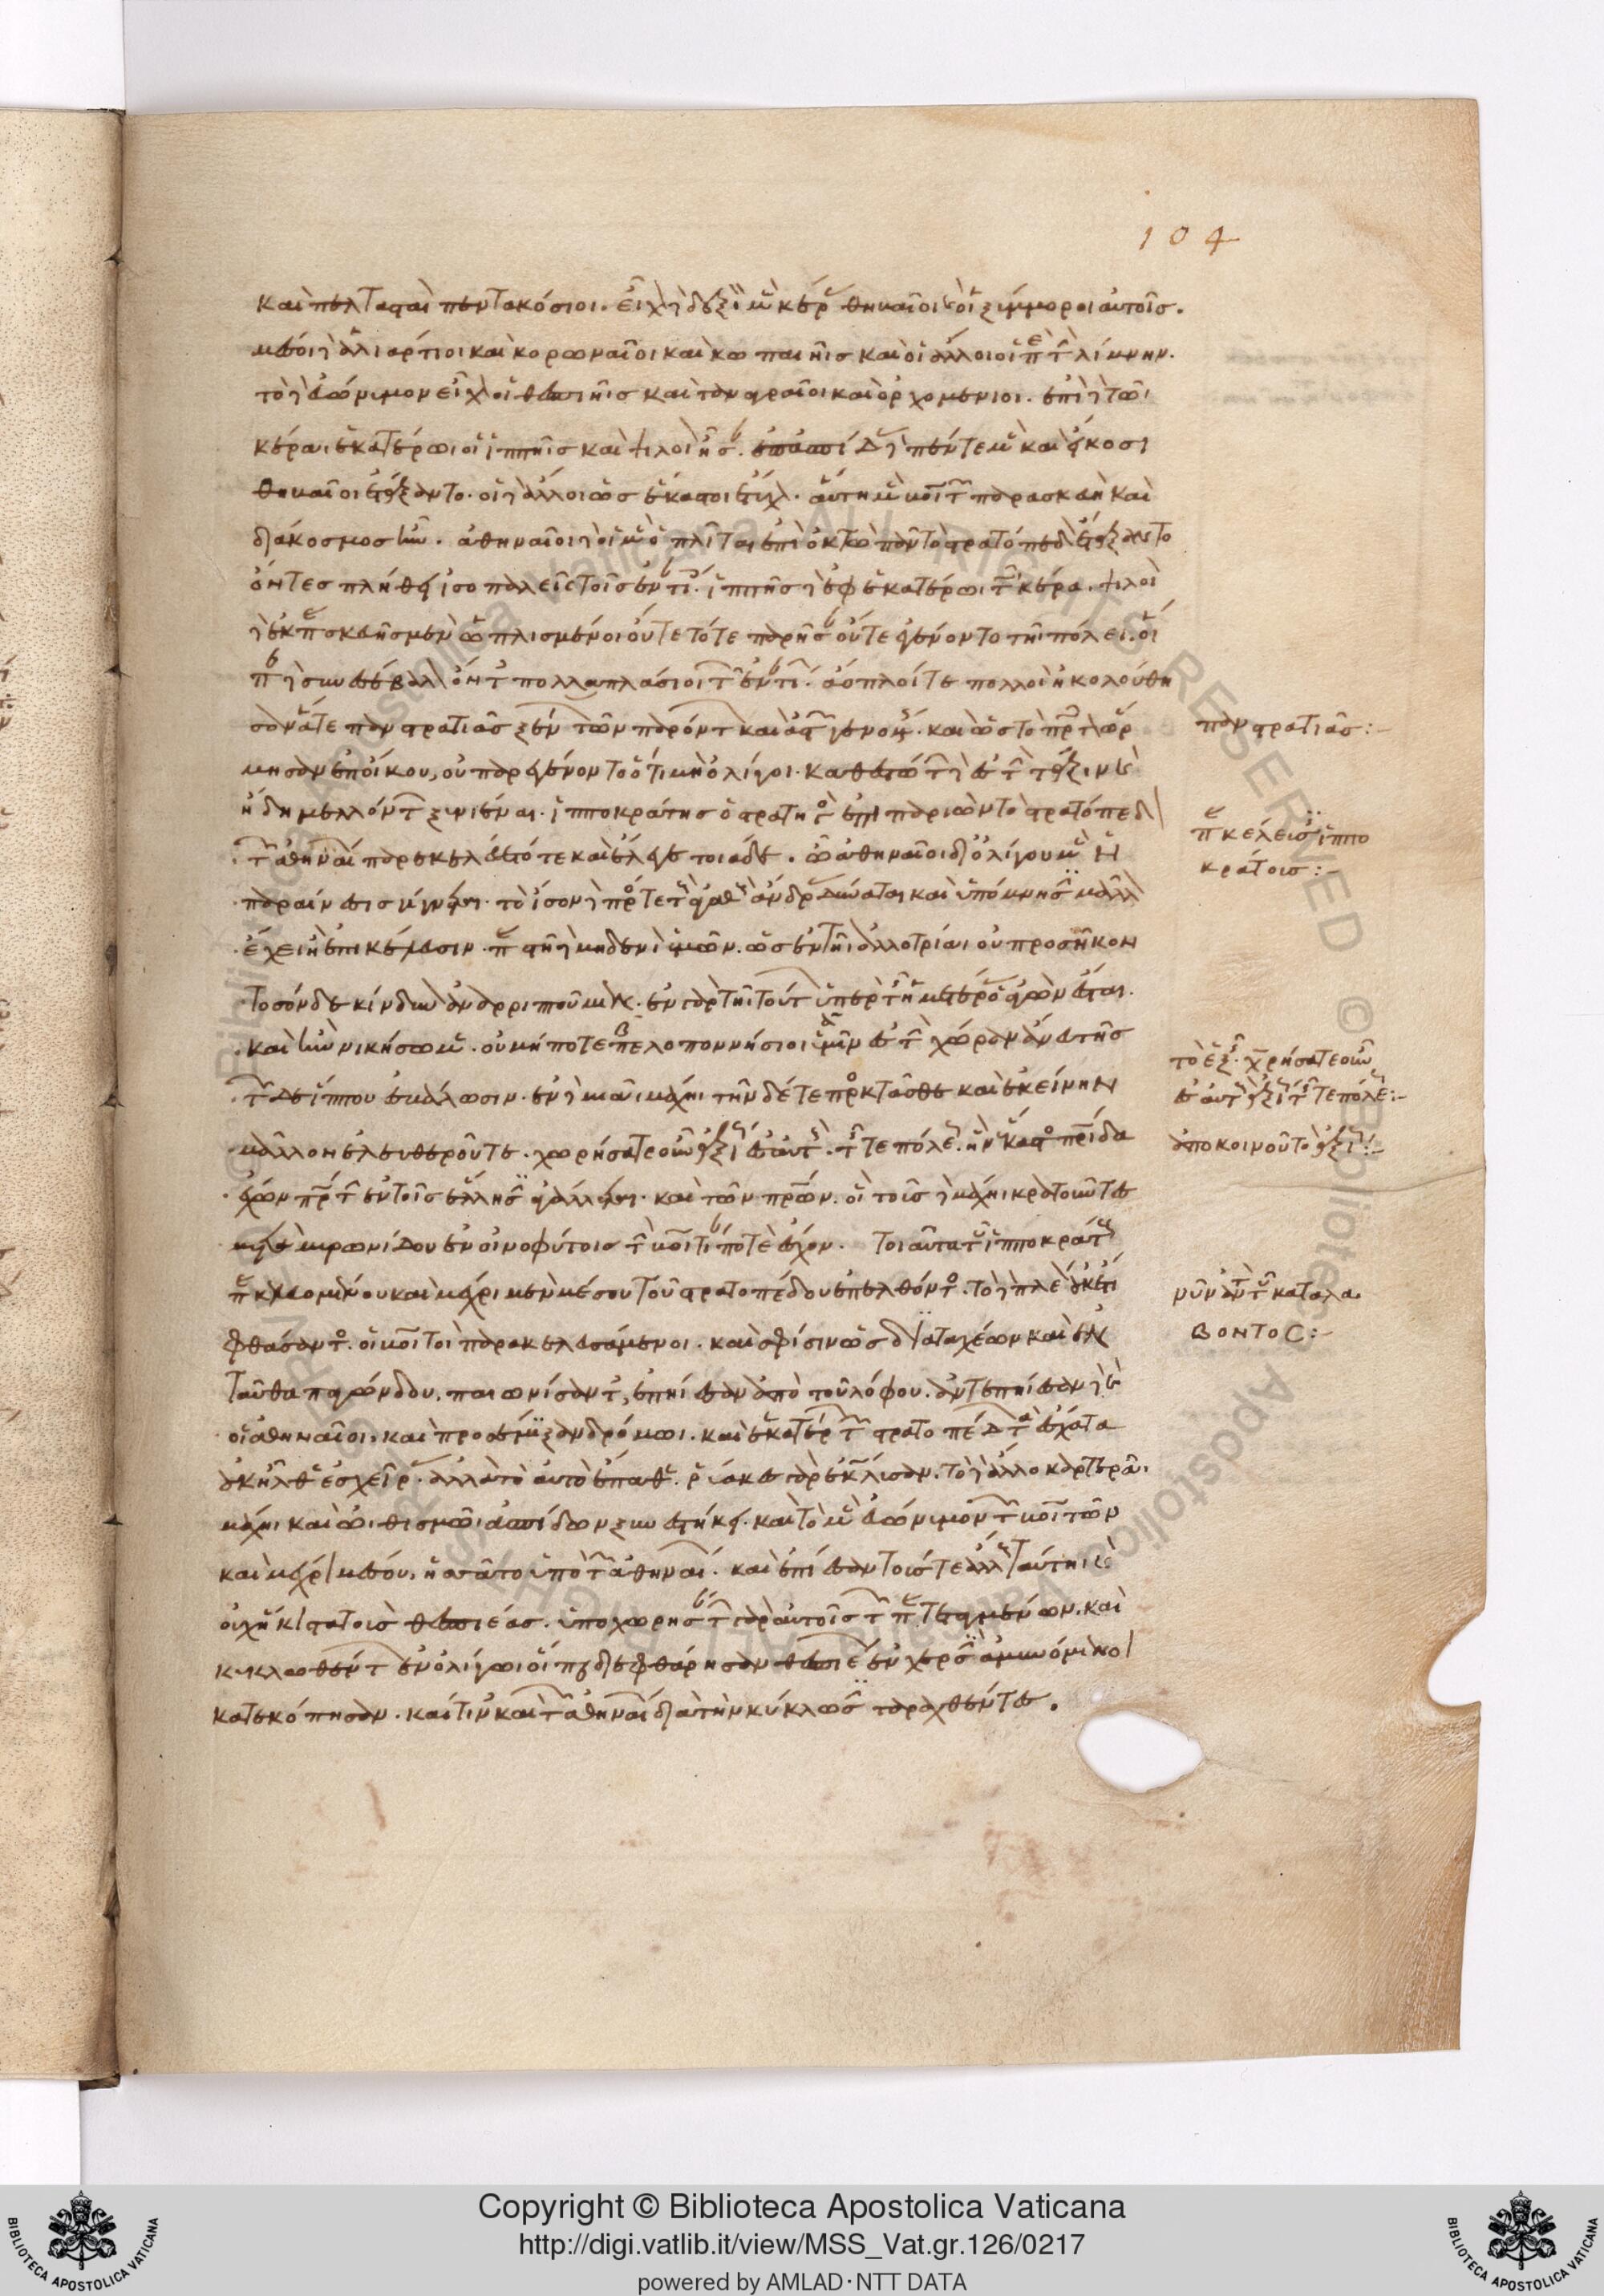 104
καὶ πελτασταὶ πεντακόσιοι. εἶχ δὲ δεξι μ κέρ θηβαῖοι κ οἱ ξύμμοροι αὐτοῖς.
μέσοι δὲ ἁλιάρτιοι καὶ κορωναῖοι καὶ κωπαιῆς καὶ οἱ ἄλλοι οἱ πε τ λίμνην.
τὸ δὲ εὐώνυμον εἶχ οἱ θεσπιῆς καὶ ταναγραῖοι καὶ ὀρχομένιοι. ἐπὶ δὲ τῶι
κέραι ἑκατέρωι οἱ ἱππῆς καὶ ψιλοὶ ἦσ. ἐπ' ἀσπίδ δὲ πέντε μ καὶ εἴκοσι
θηβαῖοι ἐτάξαντο. οἱ δὲ ἄλλοι ὡς ἕκαστοι ἔτυχ. αὕτη μ βοι τ παρασκευὴ καὶ
διάκοσμος ἦν. ἀθηναῖοι δὲ οἱ μ ὁπλῖται ἐπὶ ὀκτὼ πᾶν τὸ στρατόπεδ ἐτάξαντο
ὄντες πλήθει ἰσοπαλεῖς τοῖς ἐναντί. ἱππῆς δὲ ἐφ' ἑκατέρωι τ κέρα. ψιλοὶ
δὲ ἐκ π σκευῆς μὲν ὡπλισμένοι οὔτε τότε παρῆσ οὔτε ἐγένοντο τῆι πόλει. οἵ
π δὲ συνεσέβαλ ὄντ πολλαπλάσιοι τ ἐναντί. ἄοπλοί τε πολλοὶ ἠκολούθη
σαν ἅτε πανστρατιᾶς ξέν τῶν παρόντ καὶ ἀστ γενομ. καὶ ὡς τὸ πρ τ ὥρ
μησαν ἐπ' οἴκου, οὐ παρεγένοντο ὅτι μὴ ὀλίγοι. καθεστώτ δὲ ἐς τ τάξιν κ
ἤδη μελλόντ ξυνιέναι. ἱπποκράτης ὁ στρατηγ ἐπιπαριὼν τὸ στρατόπεδ
τ ἀθηναί παρεκελεύετό τε καὶ ἔλεγε τοιάδε. ὦ ἀθηναῖοι δι' ὀλίγου μ ἡ
παραίνεσις γίγνεται. τὸ ἴσον δὲ πρ τε τ ἀγαθ ἄνδρ δύναται καὶ ὑπόμνησ μᾶλλ
ἔχει ἢ ἐπικέλευσιν. π στῆι δὲ μηδενὶ ὑμῶν. ὡς ἐν τῆι ἀλλοτρίαι οὐ προσῆκον
τοσόνδε κίνδυν ἀναρριπτοῦμεν. ἐν γὰρ τῆι τούτ ὑπὲρ τ ἡμετέρ ὁ ἀγὼν ἔσται.
καὶ ἢν νικήσωμ. οὐ μήποτε πελοποννήσιοι ὑμῖν ἐς τ χώραν ἄνευ τῆς
τ δε ἵππου ἐσβάλωσιν. ἐν δὲ μιᾶι μάχηι τήνδέ τε προκτᾶσθε καὶ ἐκείνην
μᾶλλον ἐλευθεροῦτε. χωρήσατε οὖν ἀξί ἐς αὐτ. τ τε πόλε. ἣν ἕκαστο πρίδα
ἔχων πρ τ ἐν τοῖς ἕλλησ ἀγάλλεται. καὶ τῶν πρων. οἳ τοῖς δὲ μάχηι κρατοῦντες
μετὰ μυρωνίδου ἐν οἰνοφύτοις τ βοιτί ποτὲ ἔσχον. τοιαῦτα τ ἱπποκράτ
π κελευομένου καὶ μέχρι μὲν μέσου τοῦ στρατοπέδου ἐπελθόντο. τὸ δὲ πλέ οὐκέτι
φθάσαντο. οἱ βοι τοὶ παρακελευσάμενοι. καὶ σφίσιν ὡς διαταχέων καὶ ἐν
ταῦθα παγώνδου, παιωνίσαντ, ἐπήιεσαν ἀπὸ τοῦ λόφου. ἀντεπήιεσαν δὲ κ
οἱ ἀθηναῖοι, καὶ προσέμιξαν δρόμωι. καὶ ἑκατέρ τ στρατοπέδ τὰ ἔσχατα
οὐκ ἦλθ ἐς χεῖρ. ἀλλὰ τὸ αὐτὸ ἔπαθ. ῥύακες γὰρ ἐκώλυσαν. τὸ δὲ ἄλλο καρτερᾶι
μάχηι καὶ ὠθισμῶι ἀσπίδων ξυνεστήκει. καὶ τὸ μ εὐώνυμον τ βοι τῶν
καὶ μέχρι μέσου, ἡσσᾶτο ὑπὸ τ ἀθηναί. καὶ ἐπίεσαν τούς τε ἄλλ ταύτηι κ
οὐχ ἥκιστα τοὺς θεσπιέας. ὑποχωρησ τ γὰρ αὐτοῖς τ π τεταγμένων. καὶ
κυκλωθέντ ἐν ὀλίγωι οἵπερ διεφθάρησαν θεσπιέ ἐν χερσ ἀμυνόμενοι
κατεκόπησαν. καί τιν καὶ τ ἀθηναί διὰ τὴν κύκλωσ ταραχθέντες.
πανστρατιᾶς:-
π κέλευσ ἱππο
κράτους:-
τὸ ἑξ. χρήσατε οὖν
ἐς αὐτ ἀξί τ τε πόλε:-
ἀπὸ κοινοῦ τὸ ἀξί:-
νῦν ἀντ τ καταλα
βοντος:-
© Biblioteca Apostolica Vaticana ALL RIGHTS RESERVED
Copyright © Biblioteca Apostolica Vaticana
http://digi.vatlib.it/view/MSS_Vat.gr.126/0217
powered by AMLAD·NTT DATA
BIBLIOTECA APOSTOLICA VATICANA
BIBLIOTECA APOSTOLICA VATICANA